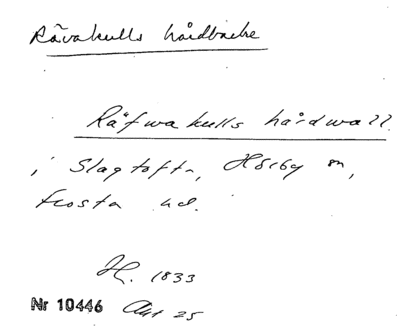 Rävakulls hårdbacke
Räfwakulls hårdwall
i Slagtofta, Hörby sn,
Frosta hd.
H. 1833
Nr 10446 Akt 25